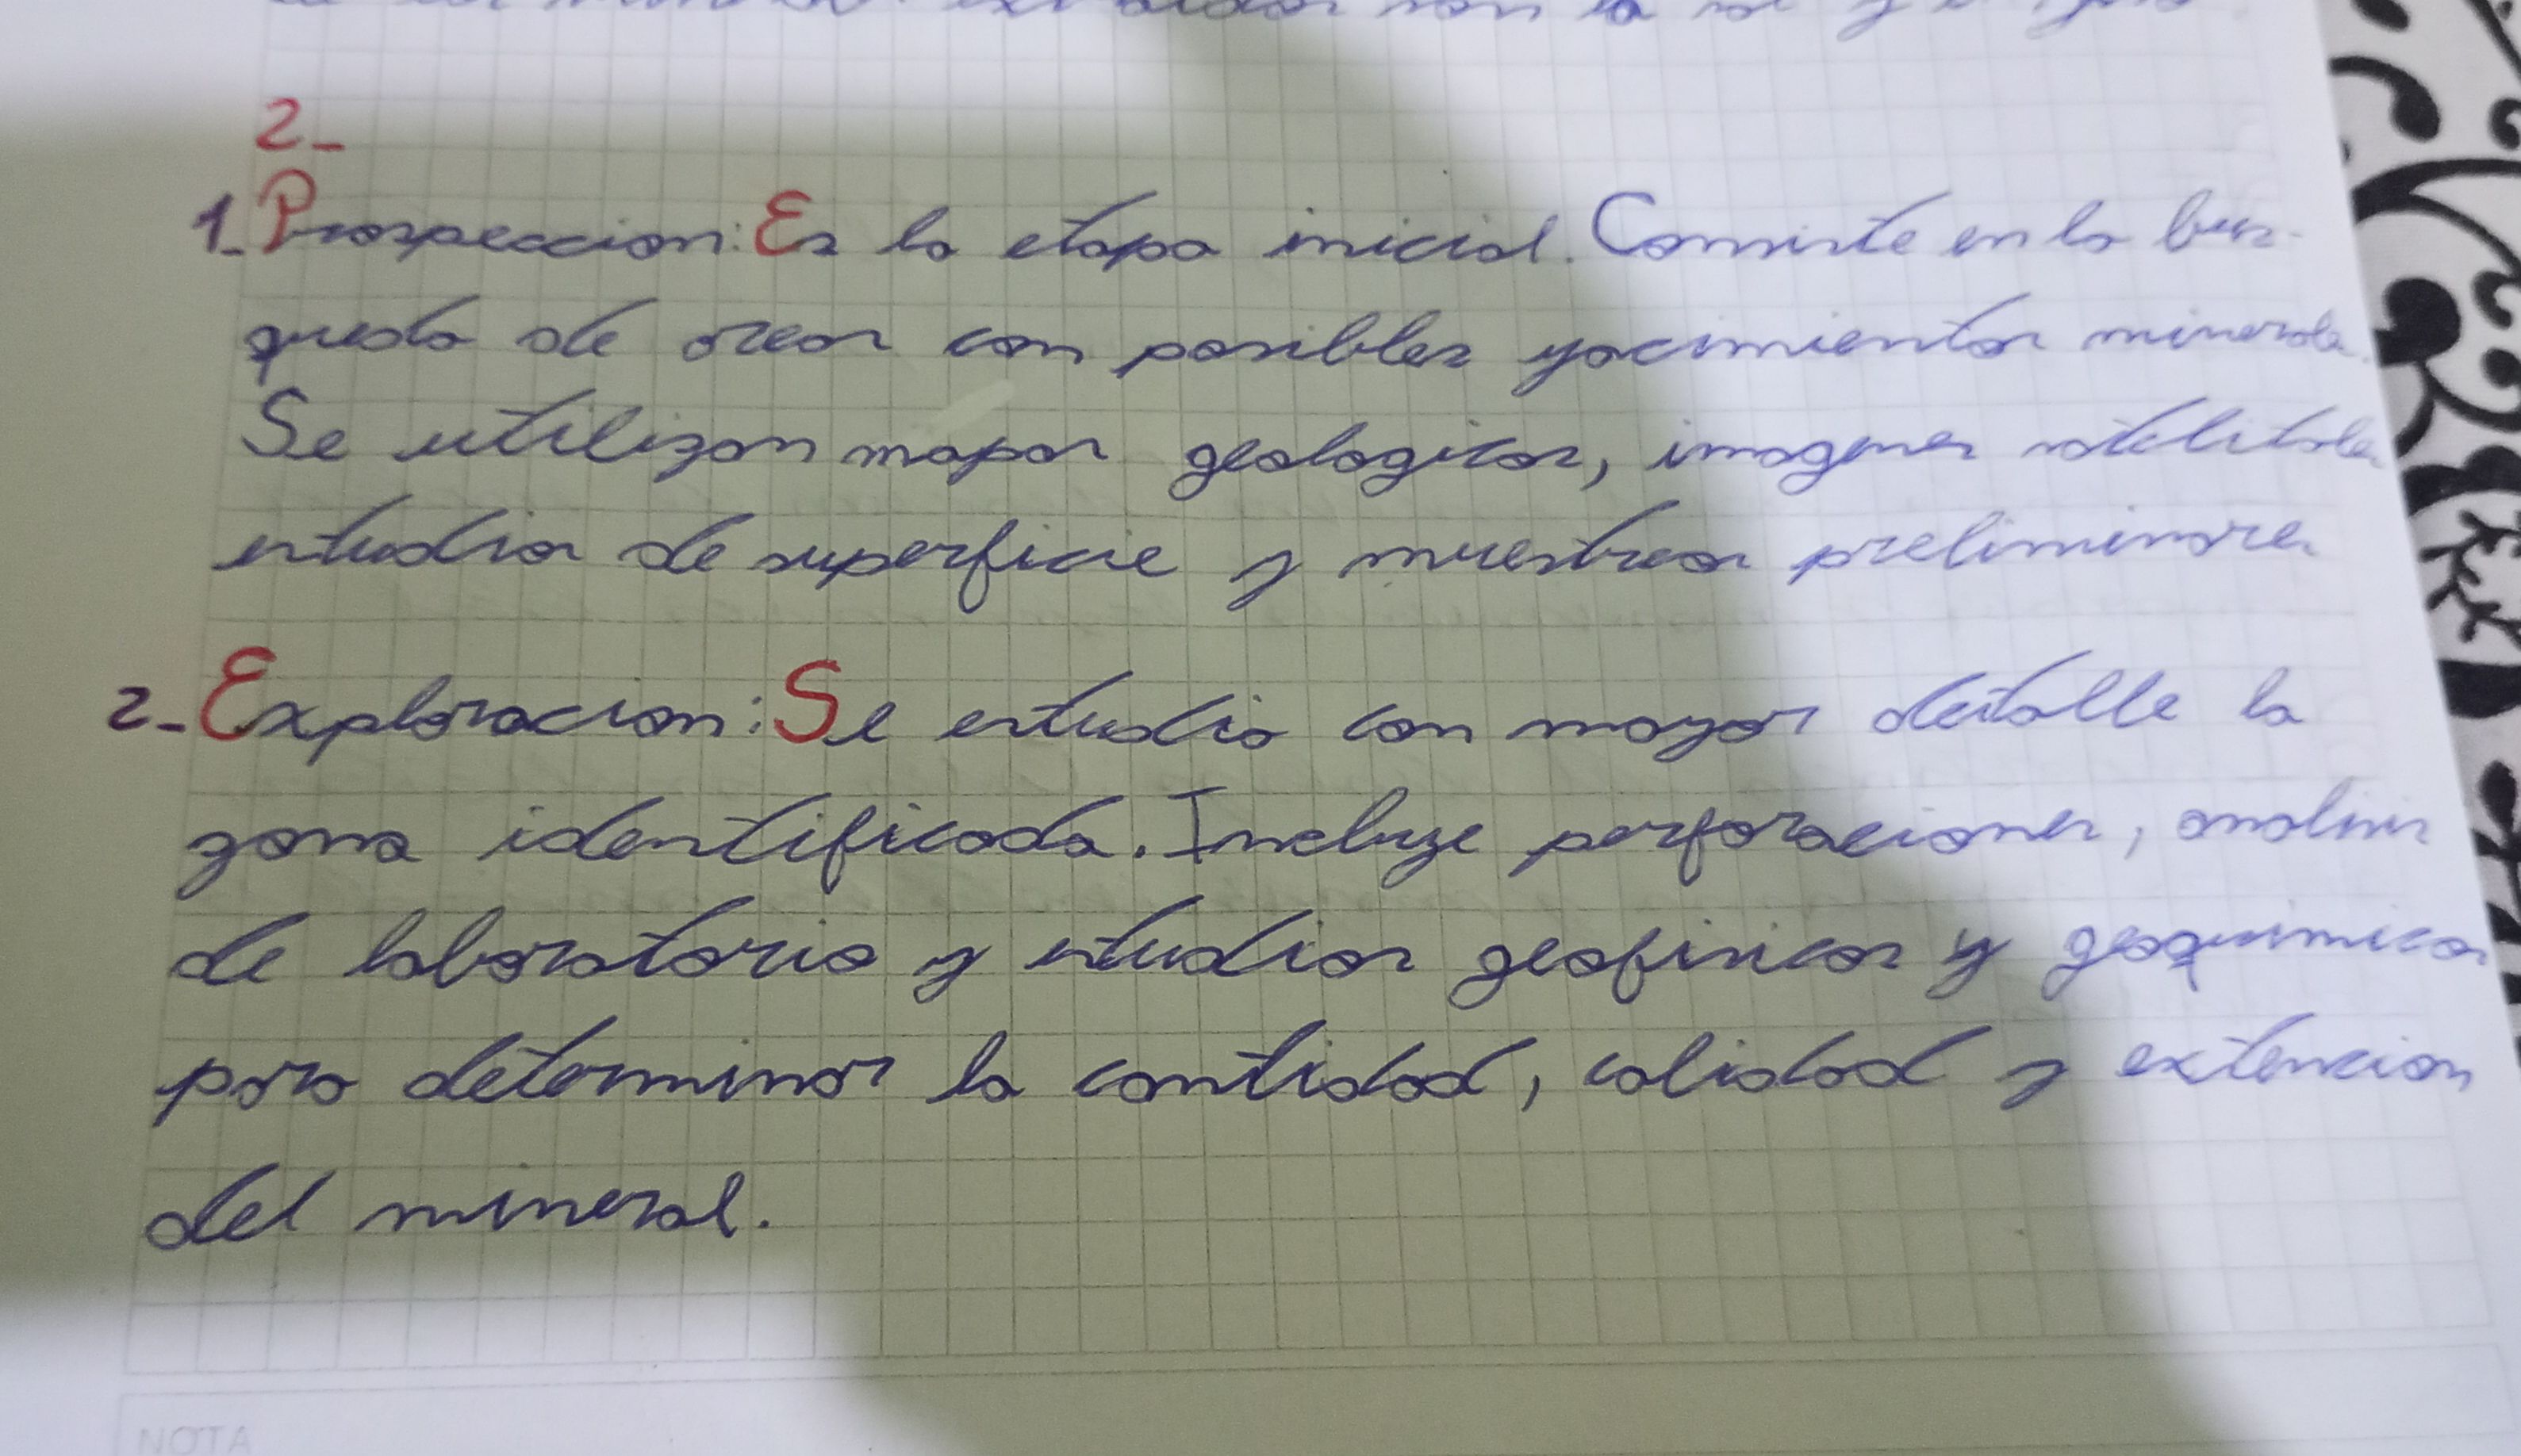 2-
1-Prospeccion: Es la etapa inicial. Consiste en la bus-
queda de areas con posibles yacimientos minerale
Se utilizan mapas geologicos, imagenes satelitale
estudios de superficie y muestreos preliminare
2-Exploracion: Se estudia con mayor detalle la
zona identificada. Incluye perforaciones, analisis
de laboratorio y estudios geofisicos y geoquimicos
para determinar la cantidad, calidad y extencion
del mineral.
NOTA